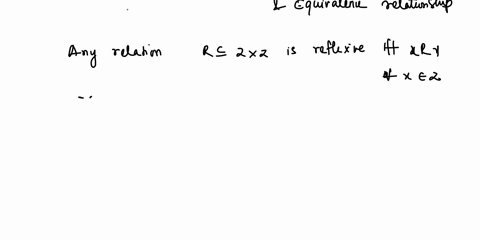 & Equivalence relationship
Any relation R ⊆ Z×Z is reflexive iff xRx
∀ x ∈ Z